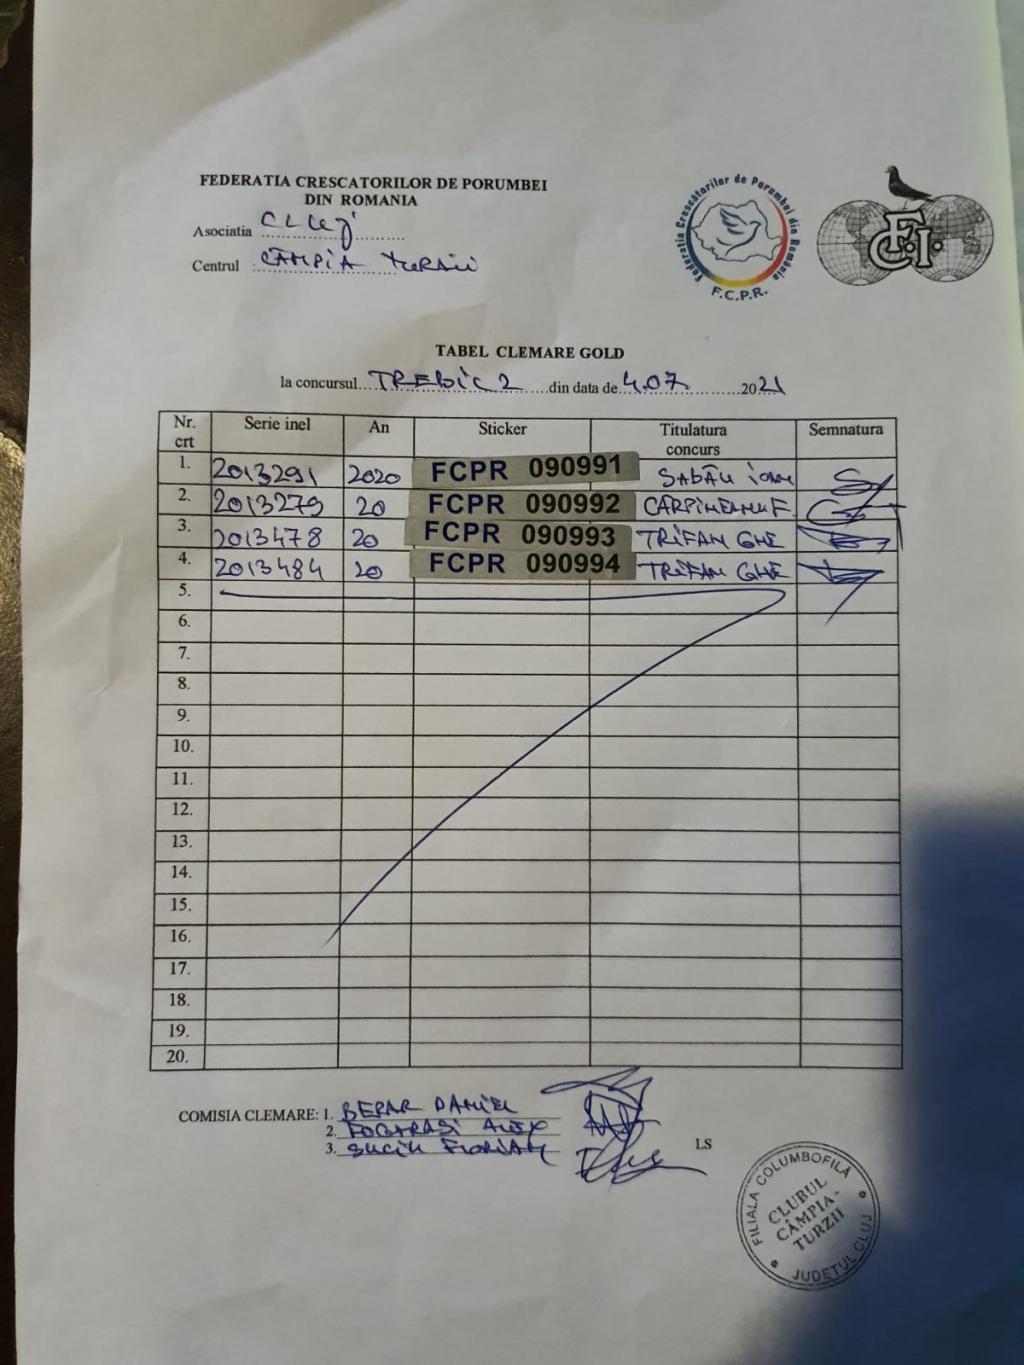 FEDERATIA CRESCATORILOR DE PORUMBEI
DIN ROMANIA
Asociatia CLUJ
Centrul CÂMPIA TURZII
Federatia Crescătorilor de Porumbei din România
F.C.P.R.
F.C.I.
TABEL CLEMARE GOLD
la concursul TREBIC 2 din data de 4.07. 2021
Nr. crt Serie inel An Sticker Titulatura concurs Semnatura
1. 2013291 2020 FCPR 090991 SABĂU IOAN
2. 2013279 20 FCPR 090992 CARPINEANU F.
3. 2013478 20 FCPR 090993 TRIFAN GHE
4. 2013484 20 FCPR 090994 TRIFAN GHE
5.
6.
7.
8.
9.
10.
11.
12.
13.
14.
15.
16.
17.
18.
19.
20.
COMISIA CLEMARE: 1. BERAR DANIEL
2. FOGARASI ALEX
3. SUCIU FLORIAN
LS
FILIALA COLUMBOFILĂ
CLUBUL
CÂMPIA-
TURZII
JUDEȚUL CLUJ